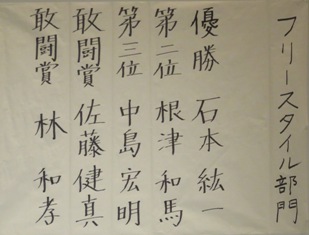 フリースタイル部門
優勝 石本紘一
第二位 根津和馬
第三位 中島宏明
敢闘賞 佐藤健真
敢闘賞 林和孝